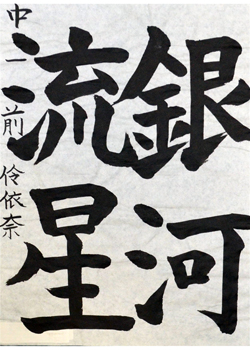 銀河
流星
中一 前 伶依奈